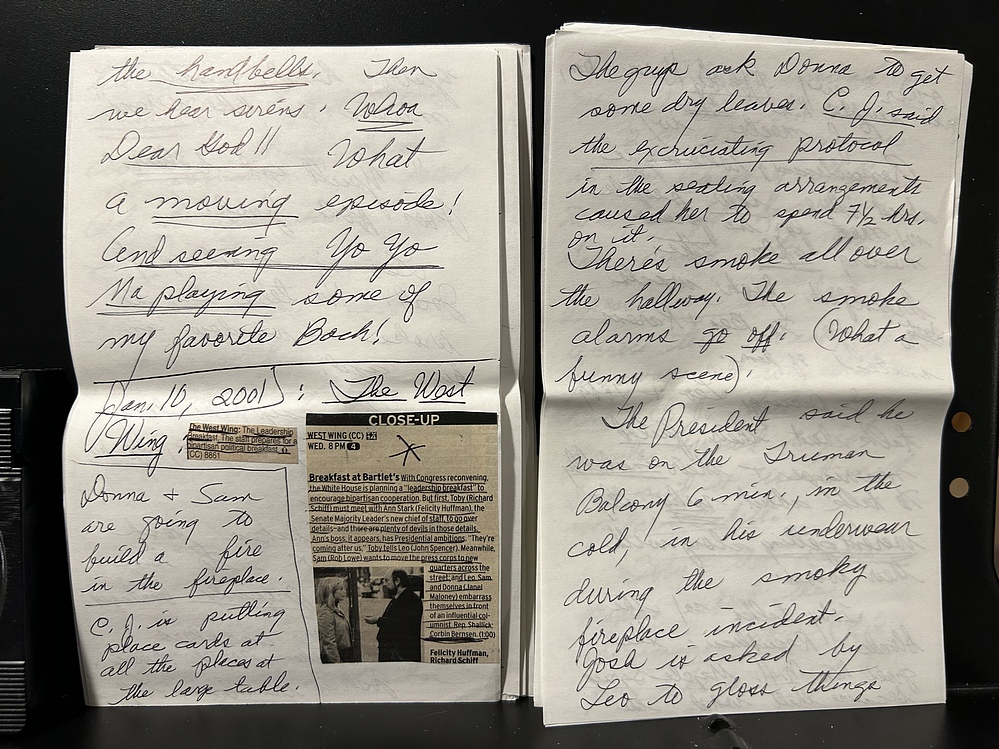 the handbells. Then
we hear sirens. Whoa
Dear God!! What
a moving episode!
And seeing Yo Yo
Ma playing some of
my favorite Bach!
Jan. 10, 2001: The West
Wing:
The West Wing: The Leadership
Breakfast. The staff prepares for a
bipartisan political breakfast.
CC) 8861
Donna + Sam
are going to
build a fire
in the fireplace.
C. J. is putting
place cards at
all the places at
the large table.
CLOSE-UP
WEST WING (CC)
WED. 8 PM 4
Breakfast at Bartlet's With Congress reconvening,
the White House is planning a "leadership breakfast" to
encourage bipartisan cooperation. But first, Toby (Richard
Schiff) must meet with Ann Stark (Felicity Huffman), the
Senate Majority Leader's new chief of staff, to go over
details—and there are plenty of devils in those details.
Ann's boss, it appears, has Presidential ambitions. "They're
coming after us," Toby tells Leo (John Spencer). Meanwhile,
Sam (Rob Lowe) wants to move the press corps to new
quarters across the
street; and Leo, Sam
and Donna (Janel
Maloney) embarrass
themselves in front
of an influential col-
umnist. Rep. Shallick:
Corbin Bernsen. (1:00)
Felicity Huffman,
Richard Schiff
The guys ask Donna to get
some dry leaves. C. J. said
the excruciating protocol
in the seating arrangements
caused her to spend 7½ hrs.
on it.
There's smoke all over
the hallway. The smoke
alarms go off. (What a
funny scene).
The President said he
was on the Truman
Balcony 6 min., in the
cold, in his underwear
during the smoky
fireplace incident.
Josh is asked by
Leo to gloss things